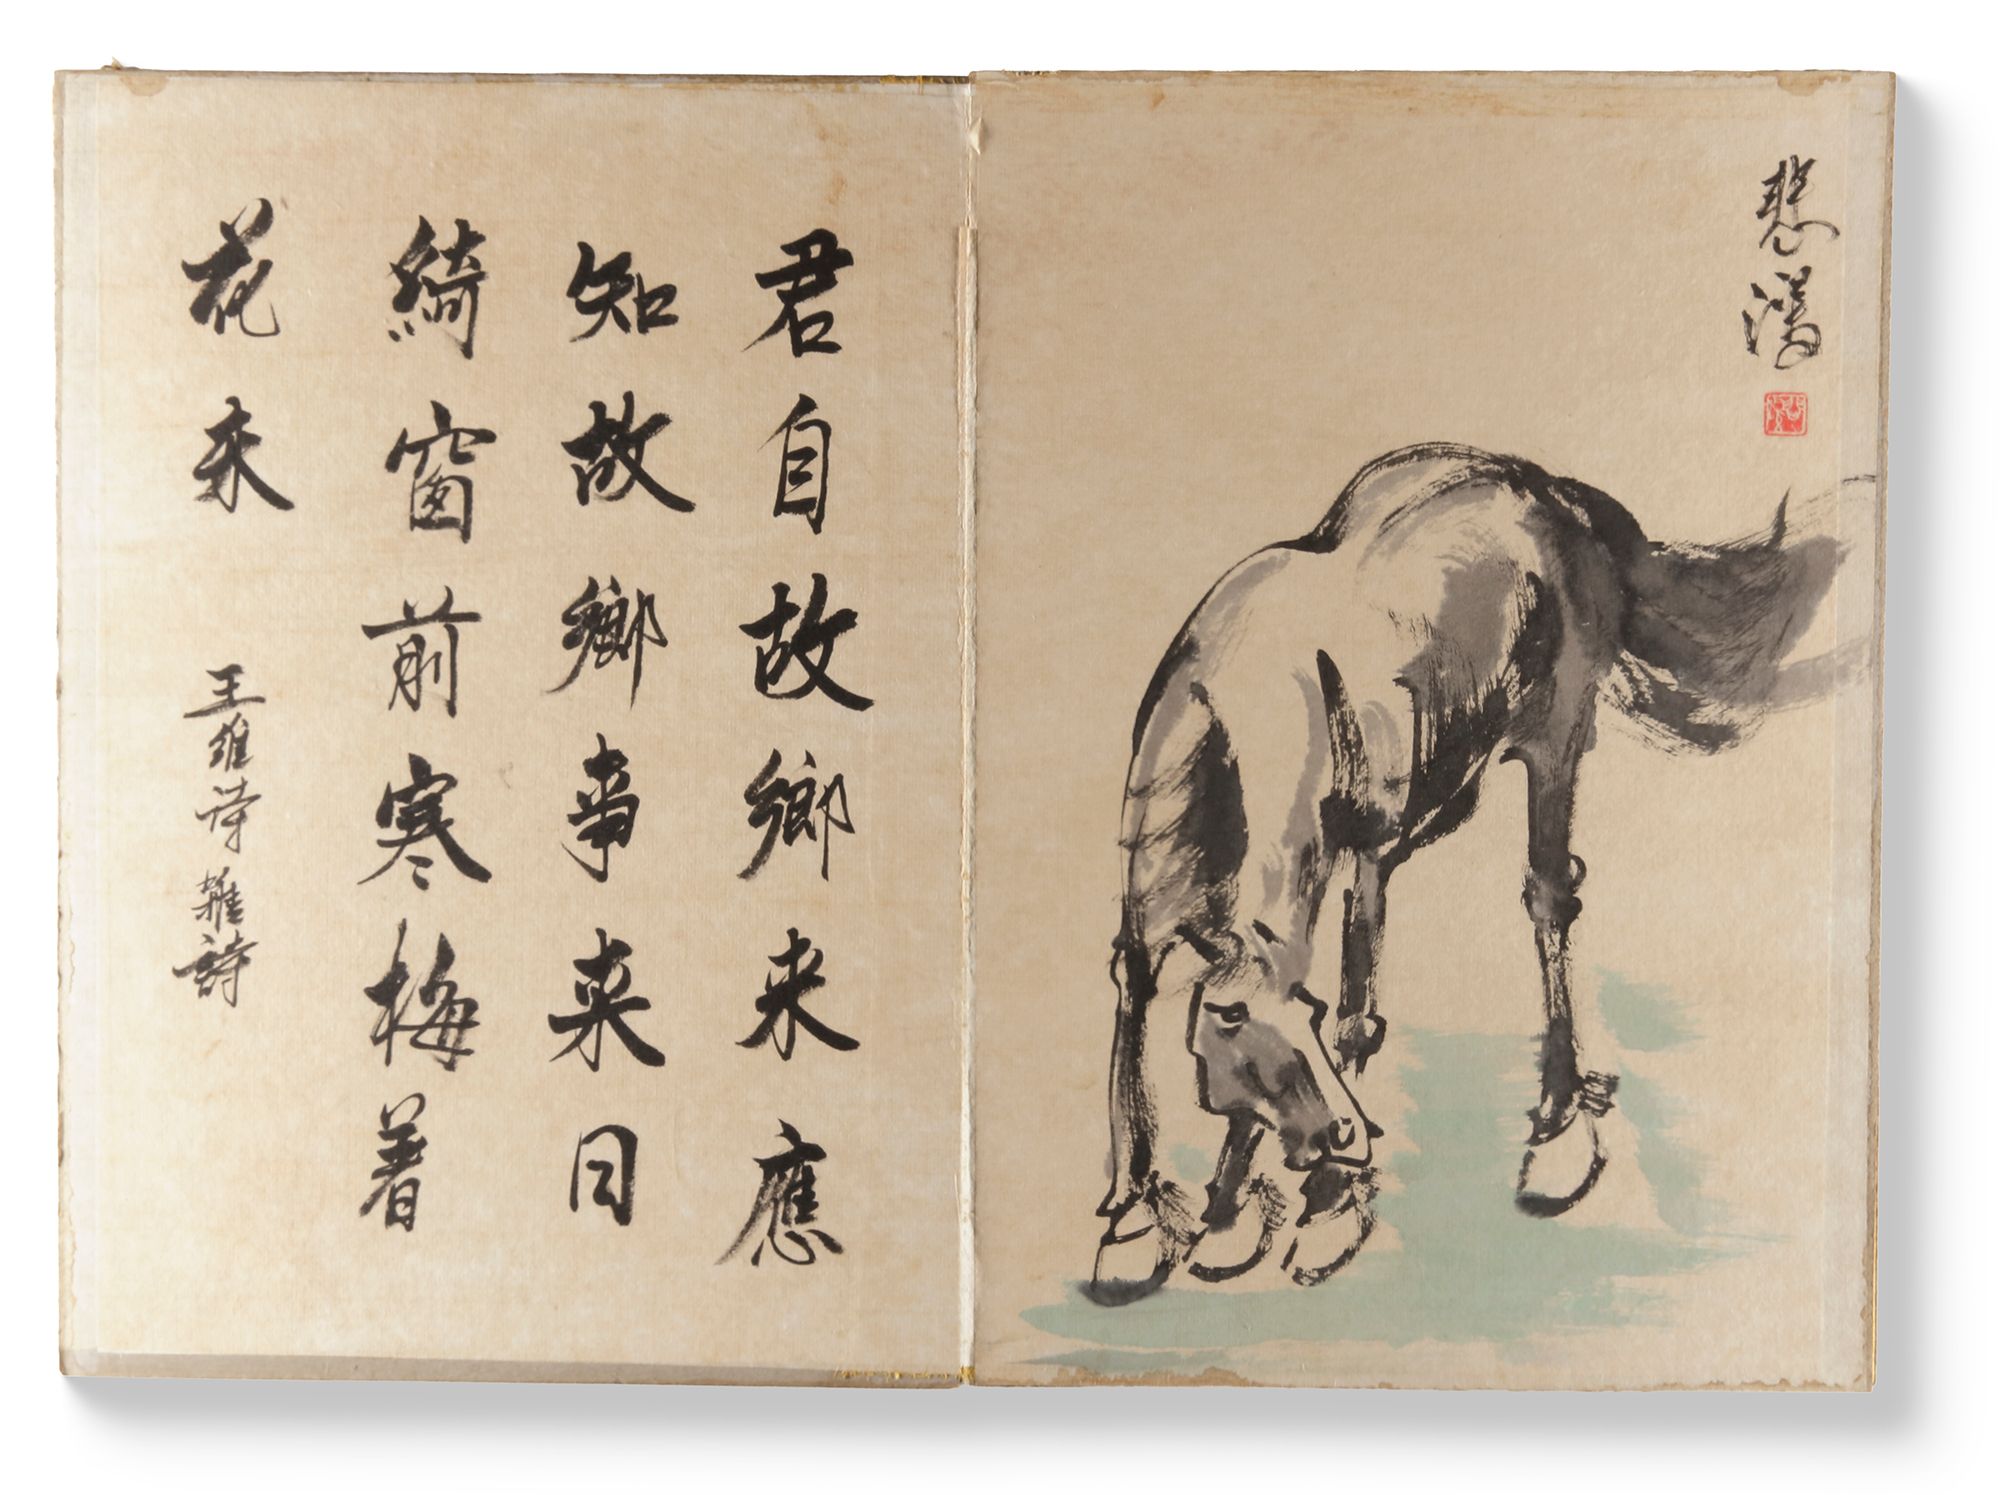 悲鴻
君自故鄉来應
知故鄉事来日
綺窗前寒梅着
花未
王維诗雜詩